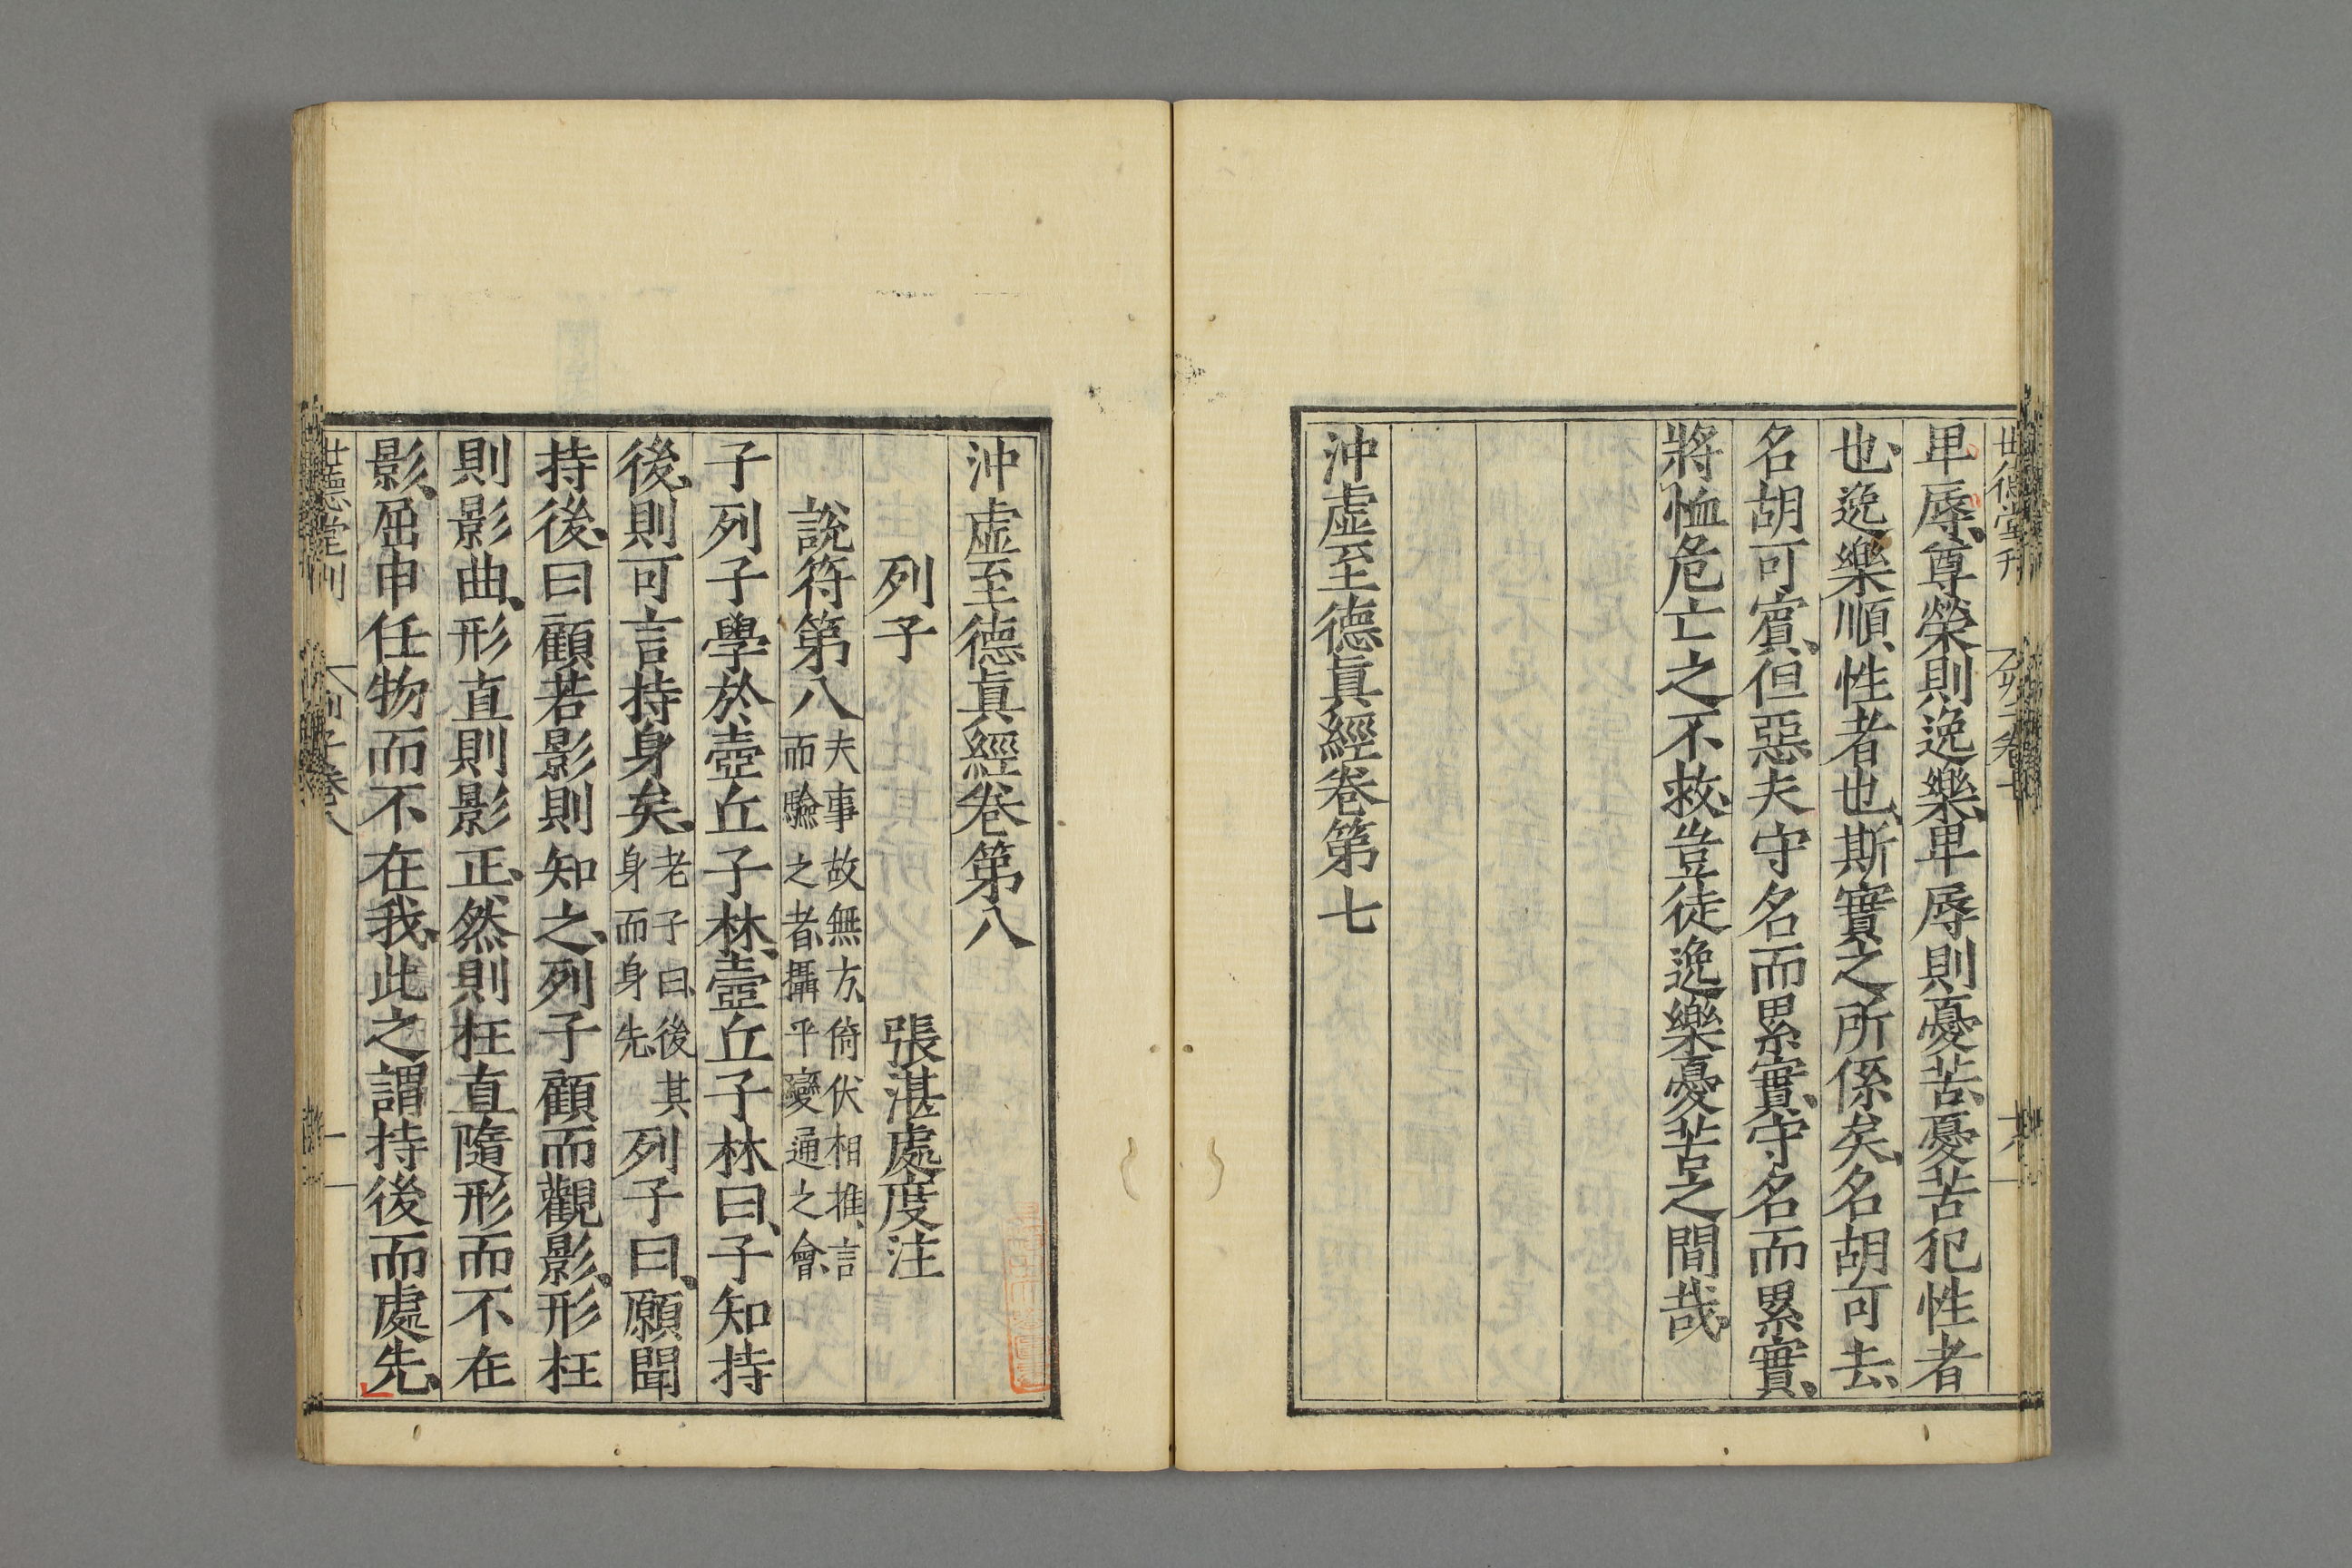 卑辱、尊榮則逸樂、卑辱則憂苦、憂苦犯性者
也、逸樂順、性者也、斯實之所係矣、名胡可去、
名胡可賓、但惡夫守名而累實、守名而累實、
將恤危亡之不救、豈徒逸樂憂苦之間哉
沖虛至德眞經卷第七
沖虛至德眞經卷第八
列子 張湛處度注
說符第八 夫事故無方、倚伏相推、言
而驗之者、攝乎變通之會、
子列子學於壺丘子林、壺丘子林曰、子知持
後、則可言持身矣、 老子曰、後其
身而身先、 列子曰、願聞
持後、曰顧若影則知之、列子顧而觀影、形枉
則影曲、形直則影正、然則枉直隨形而不在
影、屈申任物而不在我、此之謂持後而處先、
世德堂刊 列子卷八 一